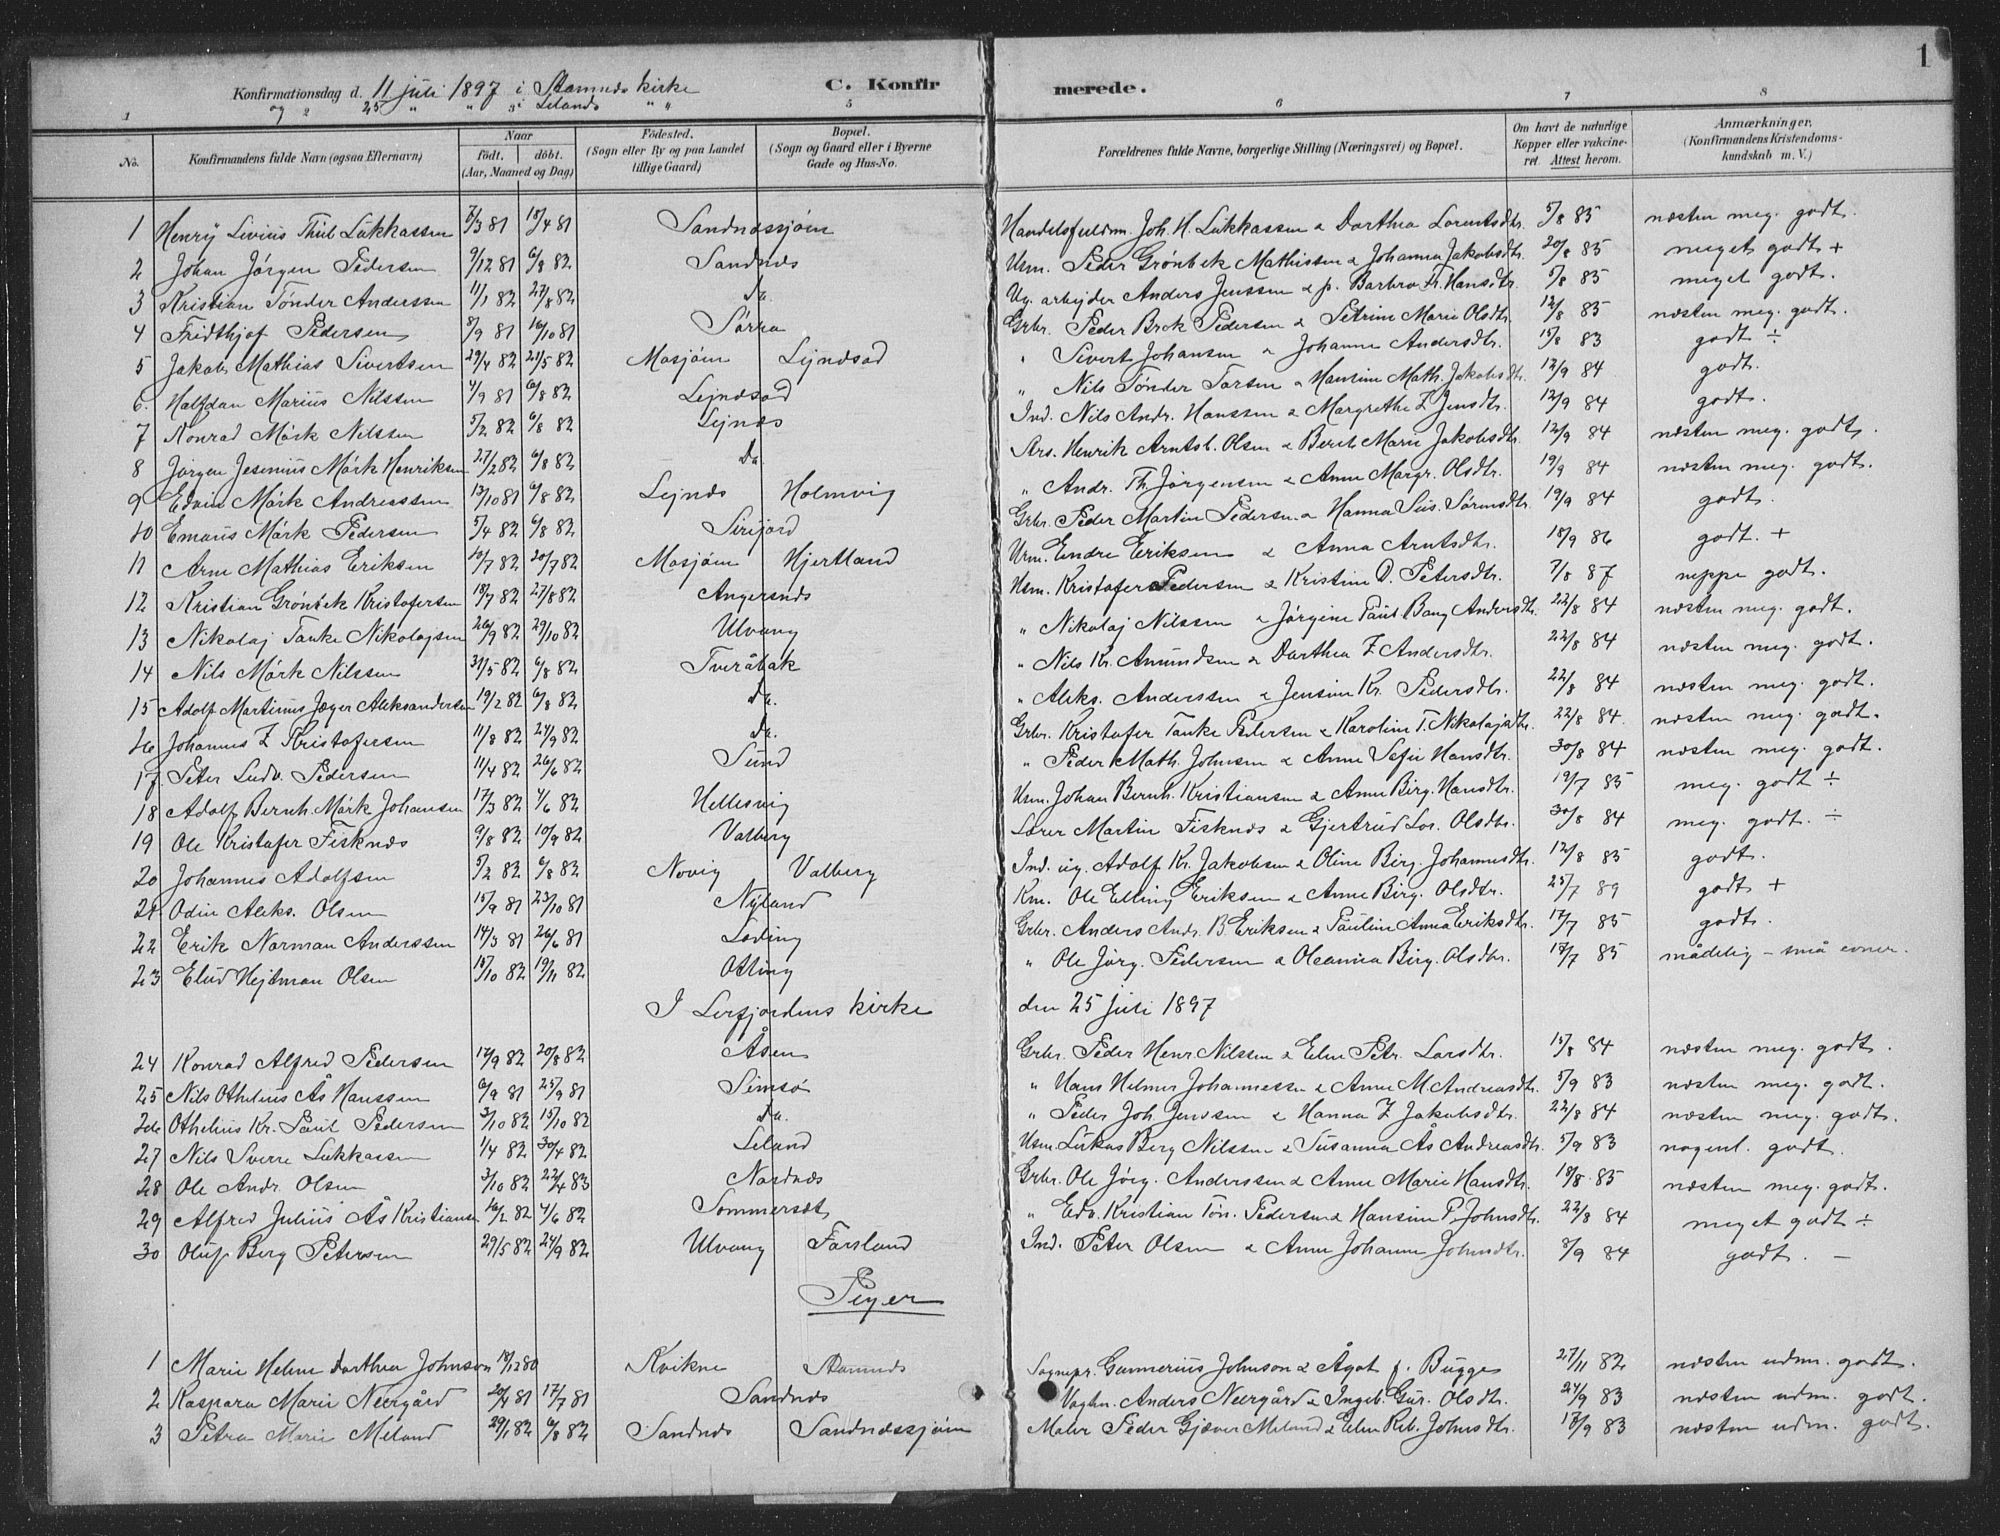 1
Konfirmationsdag d. 11 juli 1897 i Stamnes kirke C. Konfir merede.
og 25 " " i Leland " "
1 2 3 5 6 7 8
No. Konfirmandens fulde Navn (ogsaa Efternavn) Naar födt. döbt. (Aar, Maaned og Dag) Födested. (Sogn eller By og paa Landet tillige Gaard) Bopæl. (Sogn og Gaard eller i Byerne Gade og Hus-No. Forældrenes fulde Navne, borgerlige Stilling (Næringsvei) og Bopæl. Om havt de naturlige Kopper eller vakcineret. Attest herom. Anmærkninger. (Konfirmandens Kristendomskundskab m. V.)
1 Henry Livius Thiel Lukkassen 7/3 81 18/4 81 Sandnessjøen Handelsfuldm. Joh. H. Lukkassen & Dorthea Lorentsdtr. 5/8 85 næsten meg. godt.
2 Johan Jørgen Pedersen 9/12 81 6/8 82 Sandnes Usm. Peder Grønbek Mathissen & Johanna Jakobsdtr. 20/8 85 meget godt +
3 Kristian Tønder Anderssen 11/1 82 27/8 82 Do. Ug. arbejder Anders Jenssen & p. Barbro Fr. Hansdtr. 5/8 85 meget godt.
4 Fridthjof Pedersen 8/9 81 16/10 81 Sørra Grbr. Peder Brok Pedersen & Petrine Marie Olsdtr. 12/8 85 næsten meg. godt.
5 Jakob Mathias Sivertsen 29/4 82 21/5 82 Mosjøen Lejndsod " Sivert Johansen & Johanne Andersdtr. 15/8 83 godt ÷
6. Halfdan Marius Nilssen 4/9 81 6/8 82 Lejndsod " Nils Tønder Larsen & Hansine Math. Jakobsdtr. 12/9 84 godt.
7 Konrad Mørk Nilssen 5/2 82 6/8 82 Lejnds Ind. Nils Andr. Hanssen & Margrethe Z Jensdtr. 12/9 84 godt.
8 Jørgen Jesenius Mørk Henriksen 27/2 82 6/8 82 Do. Ars. Henrik Arntsb. Olsen & Berit Marie Jakobsdtr. 12/9 84 næsten meg. godt.
9 Edvin Mørk Andreassen 13/10 81 6/8 82 Lejnds Holmvig " Andr. Th. Jørgensen & Anne Margr. Olsdtr. 19/9 84 næsten meg. godt.
10 Emaus Mørk Pedersen 5/4 82 6/8 82 Sirijord Grbr. Peder Martin Pedersen & Hanna Sus. Sørensdtr. 19/9 84 godt.
11 Arne Mathias Eriksen 10/7 82 20/7 82 Mosjøen Hjertland Usm. Endre Eriksen & Anna Arntsdtr. 18/9 86 godt. +
12 Kristian Grønbek Kristofersen 18/7 82 27/8 82 Angersnds Usm. Kristofer Pedersen & Kristine D. Petersdtr. 7/8 87 neppe godt.
13 Nikolaj Tanke Nikolajsen 26/9 82 29/10 82 Ulvang " Nikolaj Nilssen & Jørgine Paul Bang Andersdtr. 22/8 84 næsten meg. godt.
14 Nils Mørk Nilssen 31/5 82 6/8 82 Tveråbak " Nils Kr. Amundsen & Dorthea Z Andersdtr. 22/8 84 næsten meg. godt.
15 Adolf Martinus Jæger Aleksandersen 19/2 82 6/8 82 Do. " Aleks. Anderssen & Jensine Kr. Pedersdtr. 22/8 84 næsten meg. godt.
16 Johannes Z Kristofersen 11/8 82 24/9 82 Do. Grbr. Kristofer Tanke Pedersen & Karoline T. Nikolajsdtr. 22/8 84. næsten meg. godt.
17. Peter Ludv. Pedersen 11/4 82 26/6 82 Sund " Peder Math. Johnsen & Anne Sofie Hansdtr. 30/8 84 næsten meg. godt.
18 Adolf Bernh. Mørk Johansen 17/3 82 4/6 82 Hellesvig Usm. Johan Bernh. Kristiansen & Anne Birg. Hansdtr. 19/7 85 meg. godt ÷
19 Ole Kristofer Fisknes 9/8 82 10/9 82 Valberg Lærer Martin Fisknes & Gjertrud Lor. Olsdtr. 30/8 84 meg. godt. ÷
20 Johannes Adolfsen 5/2 82 6/8 82 Novig Valberg Ind. ug. Adolf Kr. Jakobsen & Oline Birg. Johannesdtr. 12/8 85 godt.
21 Odin Aleks. Olsen 15/9 81 23/10 81 Nyland Km. Ole Elling Eriksen & Anne Birg. Olsdtr. 25/7 89 godt +
22 Erik Norman Anderssen 14/3 81 26/6 81 Loding Grbr. Anders Andr. B. Eriksen & Pauline Anna Eriksdtr. 17/7 85 godt.
23 Elud Hejtman Olsen 15/10 82 19/11 82 Otting " Ole Jørg. Pedersen & Oleanna Birg. Olsdtr. 17/7 85 mådelig – små evner.
I Lerfjordens kirke den 25 juli 1897
24 Konrad Alfred Pedersen 17/9 82 20/8 82 Åsen Grbr. Peder Henr. Nilssen & Elen Petr. Larsdtr. 15/8 84 næsten meg. godt.
25 Nils Othelius Ås Hanssen 6/9 81 25/9 81 Simsø " Hans Helmer Johannessen & Anne M Andreasdtr. 5/9 83 næsten meg. godt.
26 Othelius Kr. Paul Pedersen 3/10 82 15/10 82 Do. " Peder Joh. Jenssen & Hanna Z Jakobsdtr. 22/8 84 næsten meg. godt.
27 Nils Sverre Lukkassen 1/4 82 30/4 82 Leland Usm. Lukas Berg Nilssen & Susanna Ås Andreasdtr. 5/9 83 nogenl. godt.
28 Ole Andr. Olsen 3/10 82 22/4 83 Nordnes Grbr. Ole Jørg. Anderssen & Anne Marie Hansdtr. 18/8 85 næsten meg. godt.
29 Alfred Julius Ås Kristiansen 16/2 82 4/6 82 Sommerset " Edv. Kristian Tøn. Pedersen & Hansine P. Johnsdtr. 22/8 84 meget godt ÷
30 Oluf Berg Petersen 29/5 82 24/9 82 Ulvang Forsland Ind. Peter Olsen & Anne Johanne Johnsdtr. 8/9 84 godt. –
Piger
1 Marie Helene Dorthea Johnson 18/12 80 Kvikne Stamnes Sognepr. Gunnerius Johnson & Ågot f. Bugge 27/11 82 næsten udm. godt.
2 Kaspara Marie Neergård 20/4 81 17/7 81 Sandnes Vogtn. Anders Neergård & Ingeb. Gur. Olsdtr. 24/9 83 næsten udm. godt.
3 Petra Marie Meland 29/1 82 6/8 82 Sandnes Sandnessjøen Maler Peder Gjæver Meland & Elen Reb. Johnsdtr. 18/9 83 næsten udm. godt.